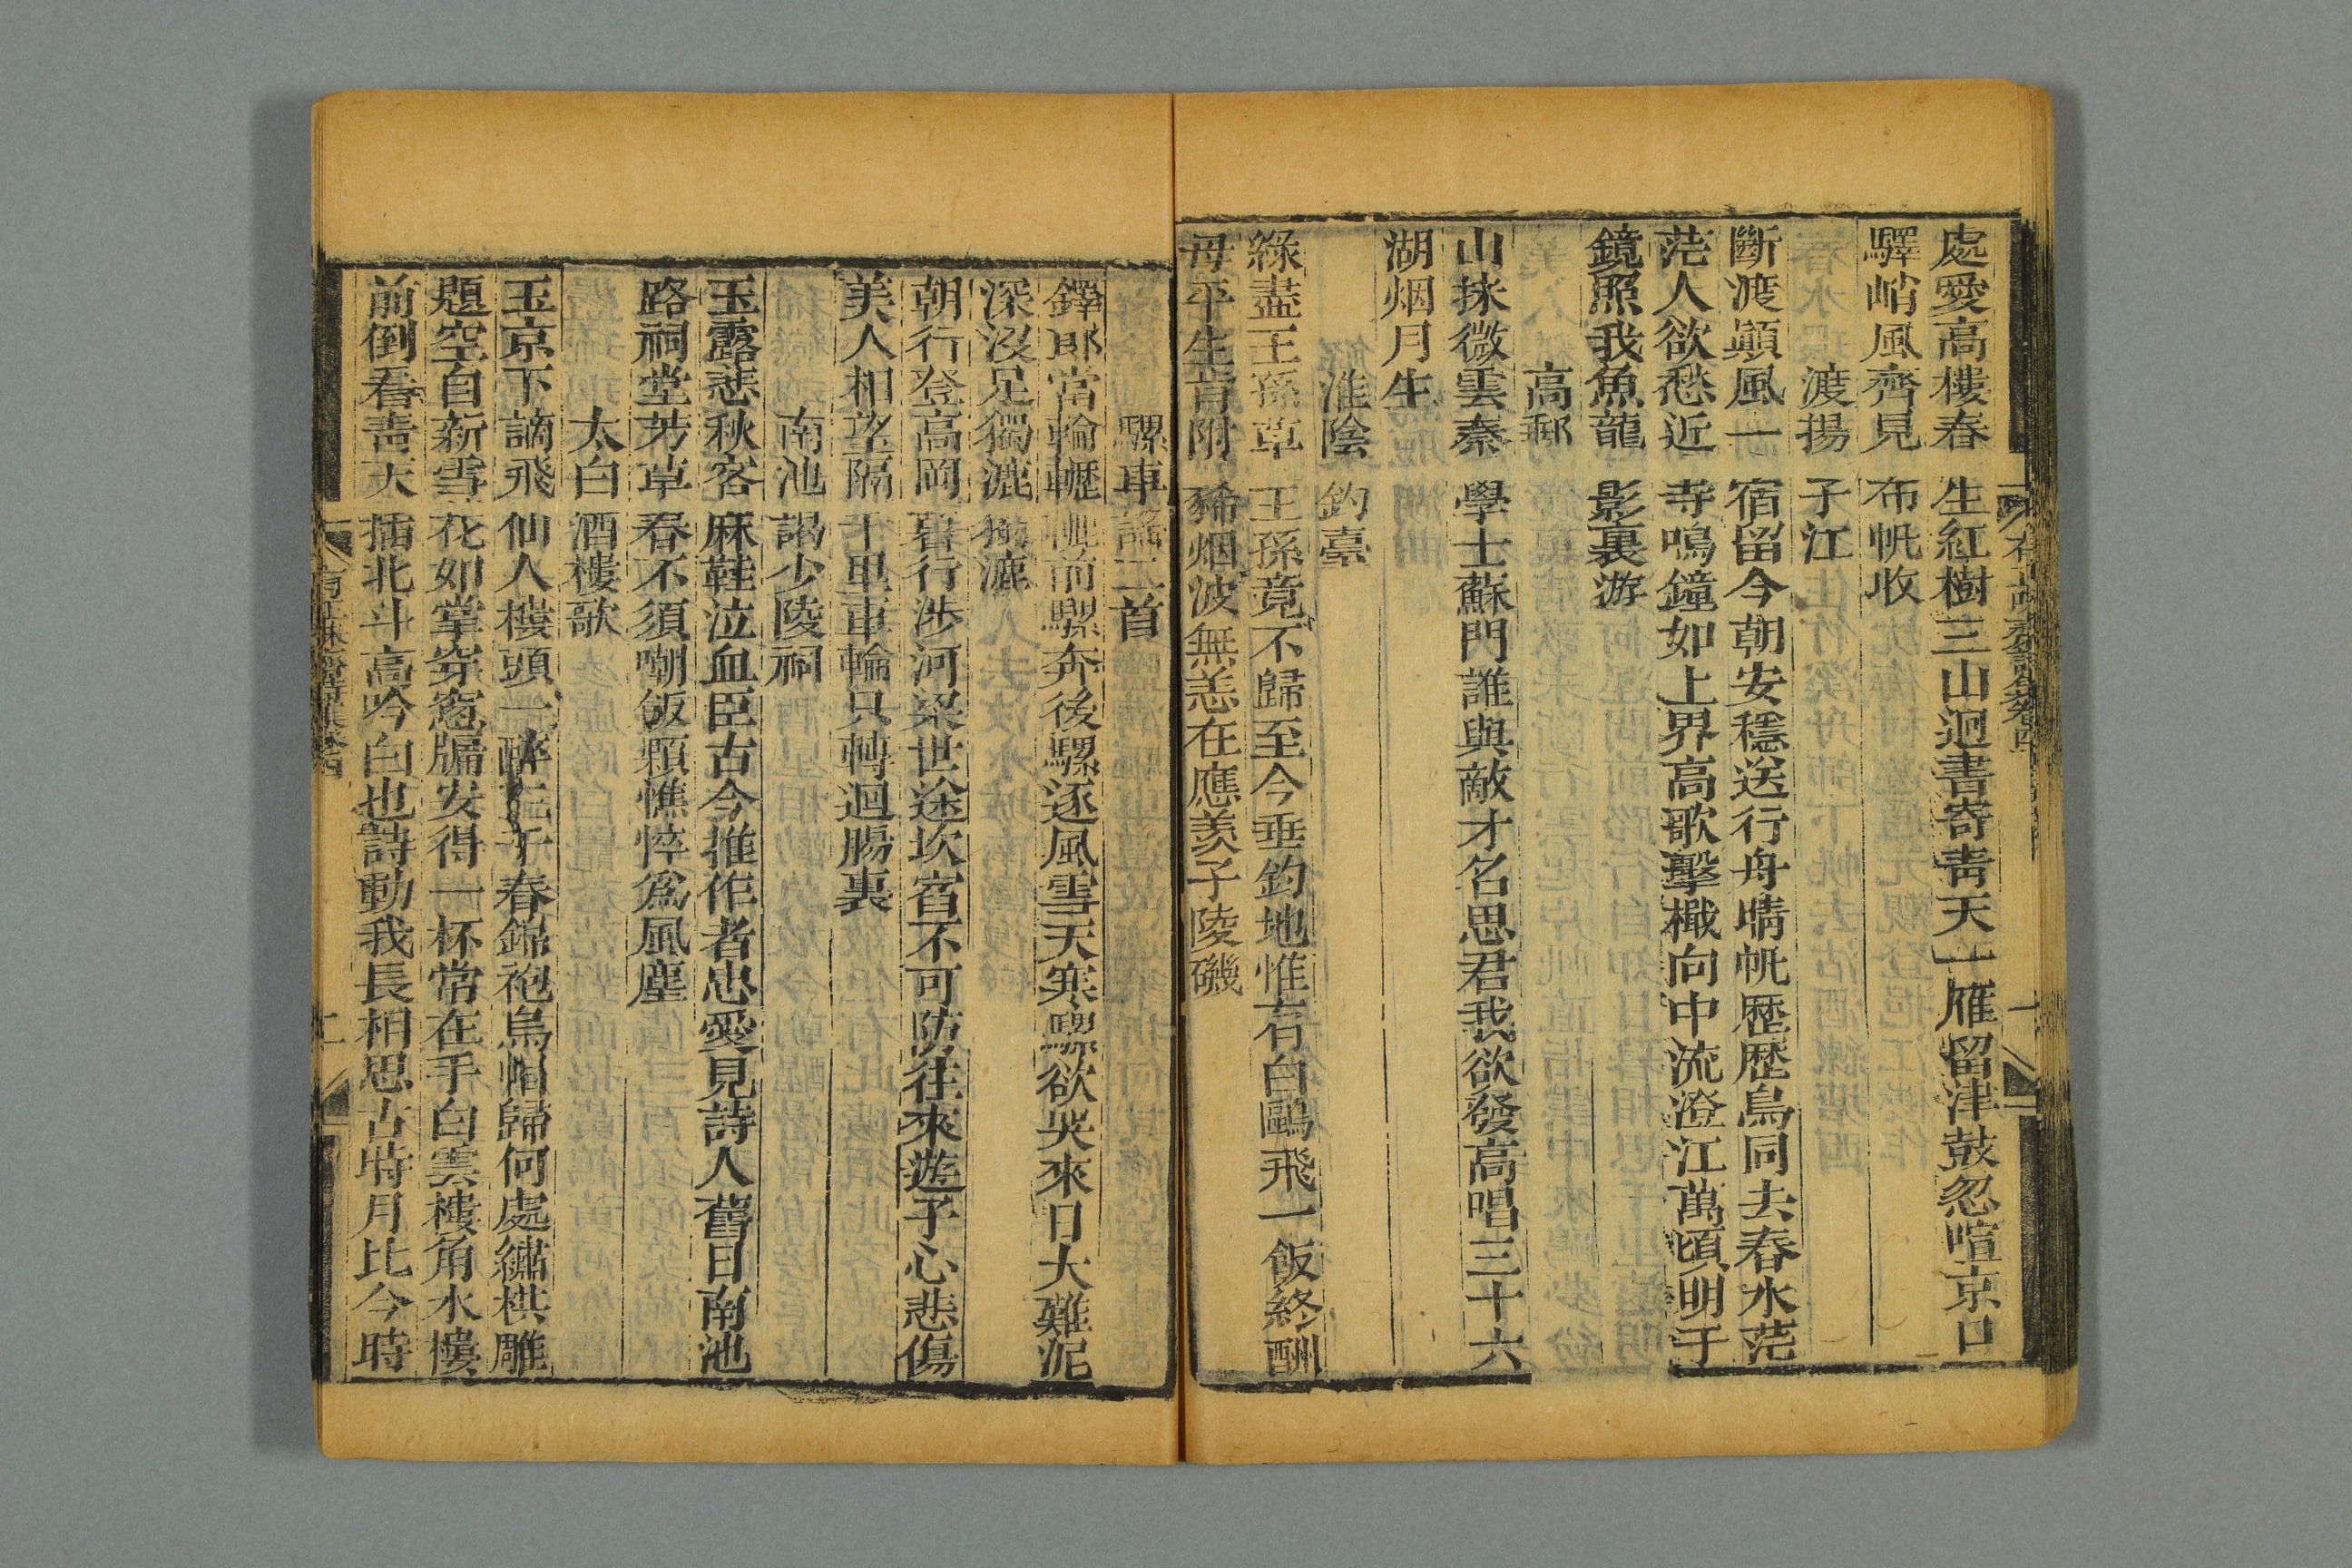 處愛高樓春生紅樹三山迴書寄靑天一雁留津鼓忽喧京口
驛峭風齊見布帆收
渡揚子江
斷渡顚風一宿留今朝安穩送行舟晴帆歷歷鳥同去春水茫
茫人欲愁近寺鳴鐘如上界高歌擊檝向中流澄江萬頃明于
鏡照我魚龍影裏游
高郵
山抹微雲秦學士蘇門誰與敵才名思君我欲發高唱三十六
湖烟月生
淮陰釣臺
綠盡王孫草王孫竟不歸至今垂釣地惟有白鷗飛一飯終酬
母平生肯附豨烟波無恙在應羨子陵磯
騾車謠二首
鐸郎當輪轣轆前騾奔後騾逐風雪天寒騾欲哭來日大難泥
深沒足獨漉獨漉
朝行登高岡暮行涉河梁世途坎窞不可防往來遊子心悲傷
美人相望隔千里車輪只轉迴腸裏
南池謁少陵祠
玉露悲秋客麻鞋泣血臣古今推作者忠愛見詩人舊日南池
路祠堂芳草春不須嘲飯顆憔悴爲風塵
太白酒樓歌
玉京下謫飛仙人樓頭一醉三千春錦袍烏帽歸何處繡栱雕
題空自新雪花如掌穿窗牖安得一杯常在手白雲樓角水樓
前倒看靑天插北斗高吟白也詩動我長相思古時月比今時